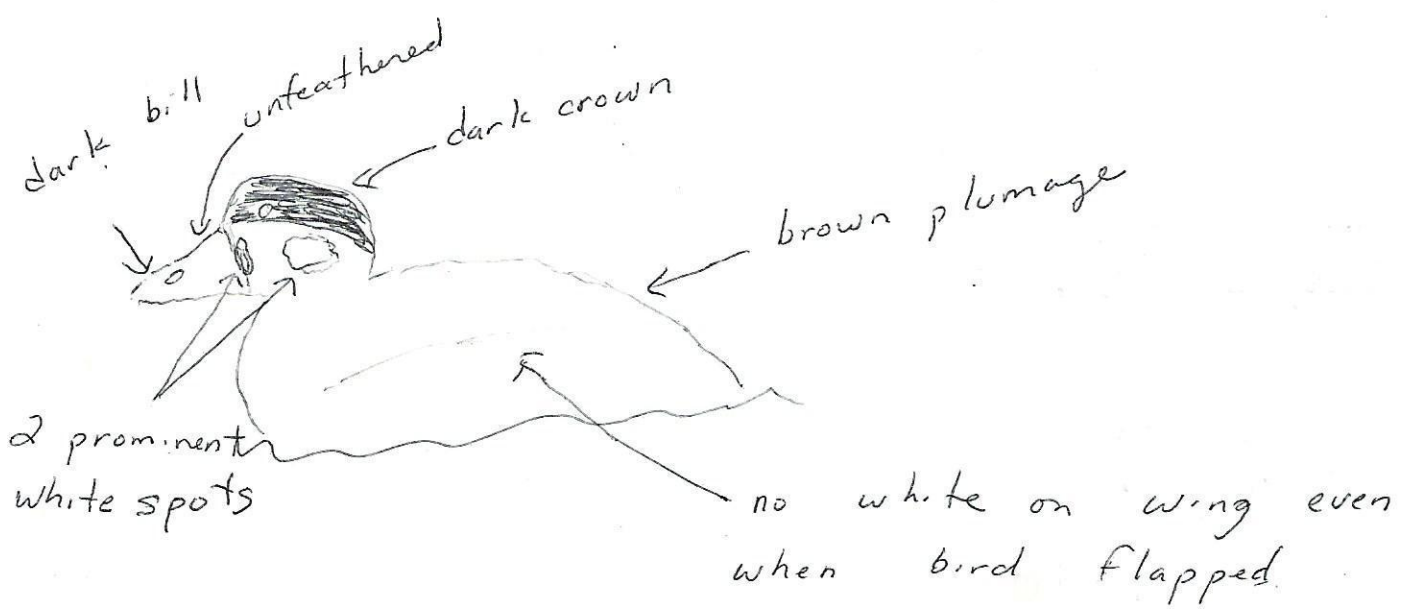 dark bill
unfeathered
dark crown
brown plumage
2 prominent
white spots
no white on wing even
when bird flapped.